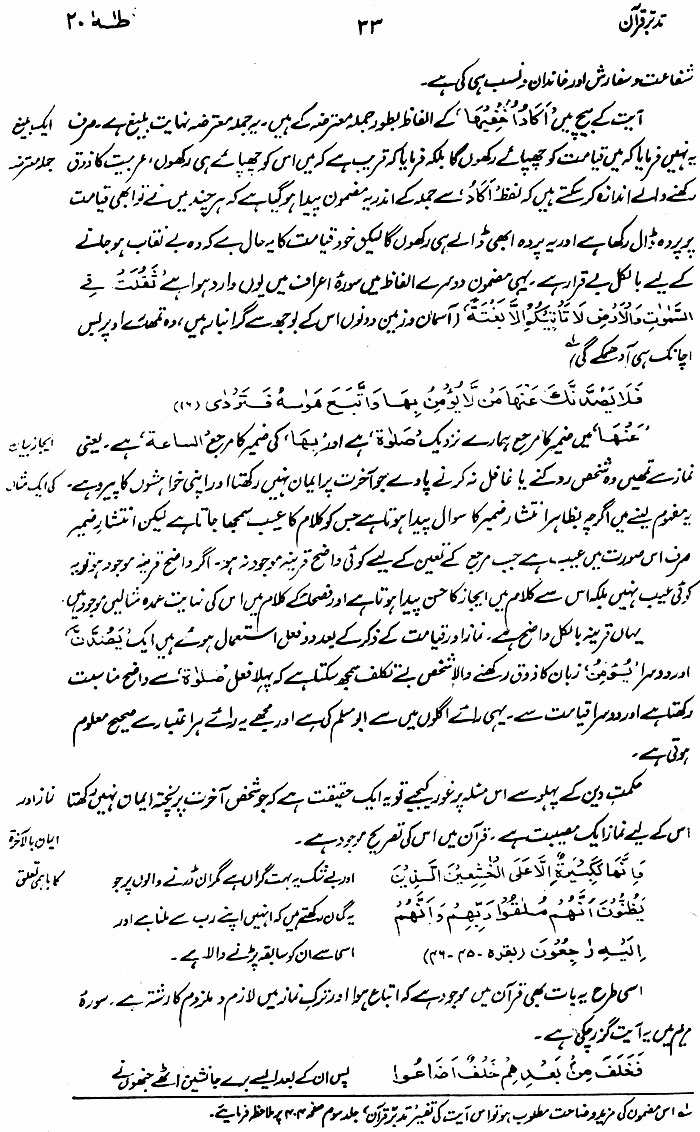 تدبرِ قرآن ۳۳ طٰہٰ ۲۰
شفاعت و سفارش اور خاندان و نسب ہی کی ہے۔
آیت کے بیچ میں 'اَکَادُ اُخْفِیْھَا' کے الفاظ بطور جملہ معترضہ کے ہیں۔ یہ جملہ معترضہ نہایت بلیغ ہے۔ صرف
ایک بلیغ
یہ نہیں فرمایا کہ میں قیامت کو چھپائے رکھوں گا بلکہ فرمایا کہ قریب ہے کہ میں اس کو چھپائے ہی رکھوں، عربیت کا ذوق
جملہ معترضہ
رکھنے والے اندازہ کر سکتے ہیں کہ لفظ 'اَکَادُ' سے جملہ کے اندر یہ مضمون پیدا ہو گیا ہے کہ ہر چند میں نے تو ابھی قیامت
پر پردہ ڈال رکھا ہے اور یہ پردہ ابھی ڈالے ہی رکھوں گا لیکن خود قیامت کا یہ حال ہے کہ وہ بے نقاب ہو جانے
کے لیے بالکل بے قرار ہے۔ یہی مضمون دوسرے الفاظ میں سورۂ اعراف میں یوں وارد ہوا ہے 'ثَقُلَتْ فِی
السَّمٰوٰتِ وَالْاَرْضِ لَا تَاْتِیْکُمْ اِلَّا بَغْتَۃً' (آسمان و زمین دونوں اس کے بوجھ سے گرانبار ہیں، وہ تمھارے اوپر بس
اچانک ہی آ دھمکے گی)؂۱
فَلَا یَصُدَّنَّکَ عَنْھَا مَنْ لَّا یُؤْمِنُ بِھَا وَاتَّبَعَ ھَوٰىہُ فَتَرْدٰی (۱۶)
'عَنْھَا' میں ضمیر کا مرجع ہمارے نزدیک 'صَلٰوۃ' ہے اور 'بِھَا' کی ضمیر کا مرجع 'الساعۃ' ہے۔ یعنی
ایجازِ بیان
نماز سے تمھیں وہ شخص روکنے یا غافل نہ کرنے پاوے جو آخرت پر ایمان نہیں رکھتا اور اپنی خواہشوں کا پیرو ہے۔
کی ایک مثال
یہ مفہوم لینے میں اگرچہ بظاہر انتشارِ ضمیر کا سوال پیدا ہوتا ہے جس کو کلام کا عیب سمجھا جاتا ہے لیکن انتشارِ ضمیر
صرف اس صورت میں عیب ہے جب مرجع کے تعین کے لیے کوئی واضح قرینہ موجود نہ ہو۔ اگر واضح قرینہ موجود ہو تو یہ
کوئی عیب نہیں بلکہ اس سے کلام میں ایجاز کا حسن پیدا ہوتا ہے اور فصحاء کے کلام میں اس کی نہایت عمدہ مثالیں موجود ہیں۔
یہاں قرینہ بالکل واضح ہے۔ نماز اور قیامت کے ذکر کے بعد دو فعل استعمال ہوئے ہیں ایک 'یَصُدَّنَّکَ'
اور دوسرا 'یُؤْمِنُ' زبان کا ذوق رکھنے والا شخص بے تکلف سمجھ سکتا ہے کہ پہلا فعل 'صلوٰۃ' سے واضح مناسبت
رکھتا ہے اور دوسرا قیامت سے۔ یہی رائے اگلوں میں سے ابو مسلم کی ہے اور مجھے یہ رائے ہر اعتبار سے صحیح معلوم
ہوتی ہے۔
حکمتِ دین کے پہلو سے اس مسئلہ پر غور کیجیے تو یہ ایک حقیقت ہے کہ جو شخص آخرت پر پختہ ایمان نہیں رکھتا
نماز اور
اس کے لیے نماز ایک مصیبت ہے۔ قرآن میں اس کی تصریح موجود ہے۔
ایمان بالآخرۃ
وَاِنَّھَا لَکَبِیْرَۃٌ اِلَّا عَلَی الْخٰشِعِیْنَ الَّذِیْنَ اور بے شک یہ بہت گراں ہے مگر ان ڈرنے والوں پر جو
کا باہمی تعلق
یَظُنُّوْنَ اَنَّھُمْ مُّلٰقُوْا رَبِّھِمْ وَاَنَّھُمْ یہ گمان رکھتے ہیں کہ انہیں اپنے رب سے ملنا ہے اور
اِلَیْہِ رٰجِعُوْنَ (بقرہ - ۴۵-۴۶) اسی سے ان کو سابقہ پڑنے والا ہے۔
اسی طرح یہ بات بھی قرآن میں موجود ہے کہ اتباعِ ہوا اور ترکِ نماز میں لازم و ملزوم کا رشتہ ہے۔ سورۂ
مریم میں یہ آیت گزر چکی ہے۔
فَخَلَفَ مِنْۢ بَعْدِھِمْ خَلْفٌ اَضَاعُوا پس ان کے بعد ایسے برے جانشین اٹھے جنھوں نے
؂۱ اس مضمون کی مزید وضاحت مطلوب ہو تو اس آیت کی تفسیر تدبرِ قرآن، جلد سوم صفحہ ۴۰۴ پر ملاحظہ فرمایئے۔